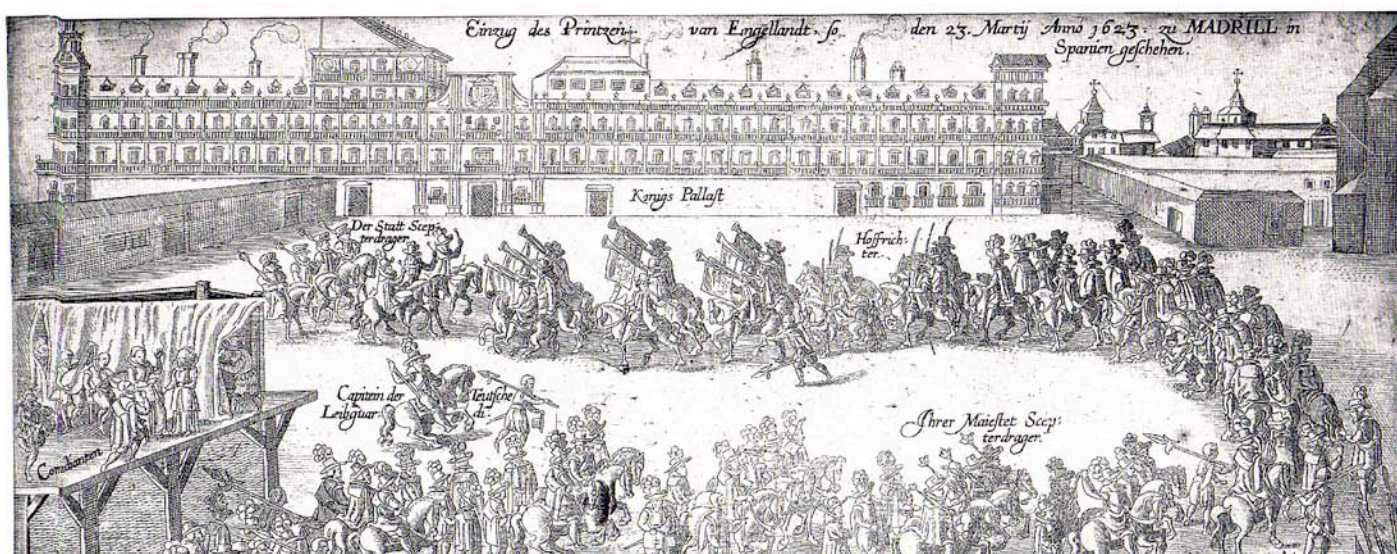 Einzug des Printzen van Engellandt, so den 23. Martij Anno 1623. zu MADRILL in
Spanien geschehen.
Konigs Pallast
Der Statt Scep-
terdrager.
Hoffrich-
ter.
Capitein der
Leibguar-
Teutsche
di.
Ihrer Maiestet Scep-
terdrager.
Comedianten